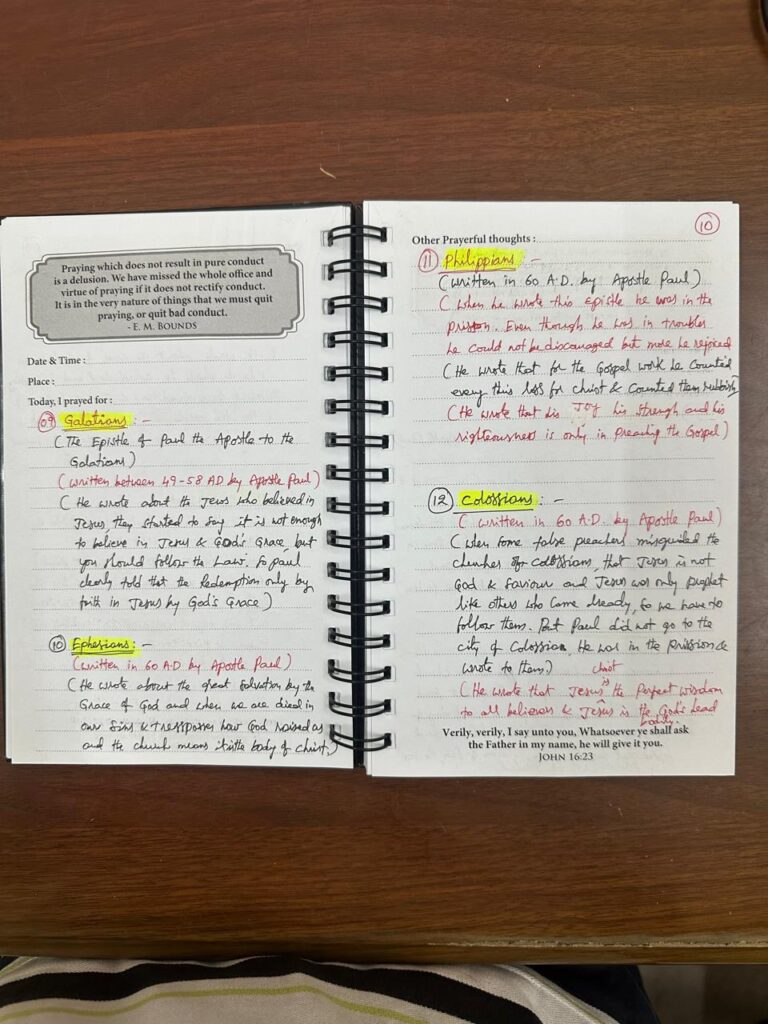 Praying which does not result in pure conduct
is a delusion. We have missed the whole office and
virtue of praying if it does not rectify conduct.
It is in the very nature of things that we must quit
praying, or quit bad conduct.
- E. M. BOUNDS
Date & Time :
Place :
Today, I prayed for :
09 Galatians : -
(The Epistle of Paul the Apostle to the
Galatians)
(written between 49-58 AD by Apostle Paul)
(He wrote about the Jews who believed in
Jesus, they started to say it is not enough
to believe in Jesus & God's Grace, but
you should follow the Law. So paul
clearly told that the Redemption only by
faith in Jesus by God's Grace)
10 Ephesians : -
(written in 60 A.D by Apostle Paul)
(He wrote about the great Salvation by the
Grace of God and when we are died in
our Sins & Tresspasses how God raised us
and the church means it is the body of Christ.)
10
Other Prayerful thoughts :
11 Philippians : -
(written in 60 A.D. by Apostle Paul)
(when he wrote this Epistle he was in the
prison. Even though he was in troubles
he could not be discouraged but more he rejoiced
(He wrote that for the Gospel work he counted
every this loss for christ & Counted them rubbish)
(He wrote that his Joy his strengh and his
righteousness is only in preaching the Gospel)
12 Colossians : -
(written in 60 A.D. by Apostle Paul)
(when some false preachers misguided the
churches of Colossians, that Jesus is not
God & Saviour and Jesus was only prophet
like others who came already, so we have to
follow them. But Paul did not go to the
city of Colossia, He was in the Prission &
wrote to them)
christ
(He wrote that Jesus is the Perfect wisdom
to all believers & Jesus is the God's head
bodily.
Verily, verily, I say unto you, Whatsoever ye shall ask
the Father in my name, he will give it you.
JOHN 16:23